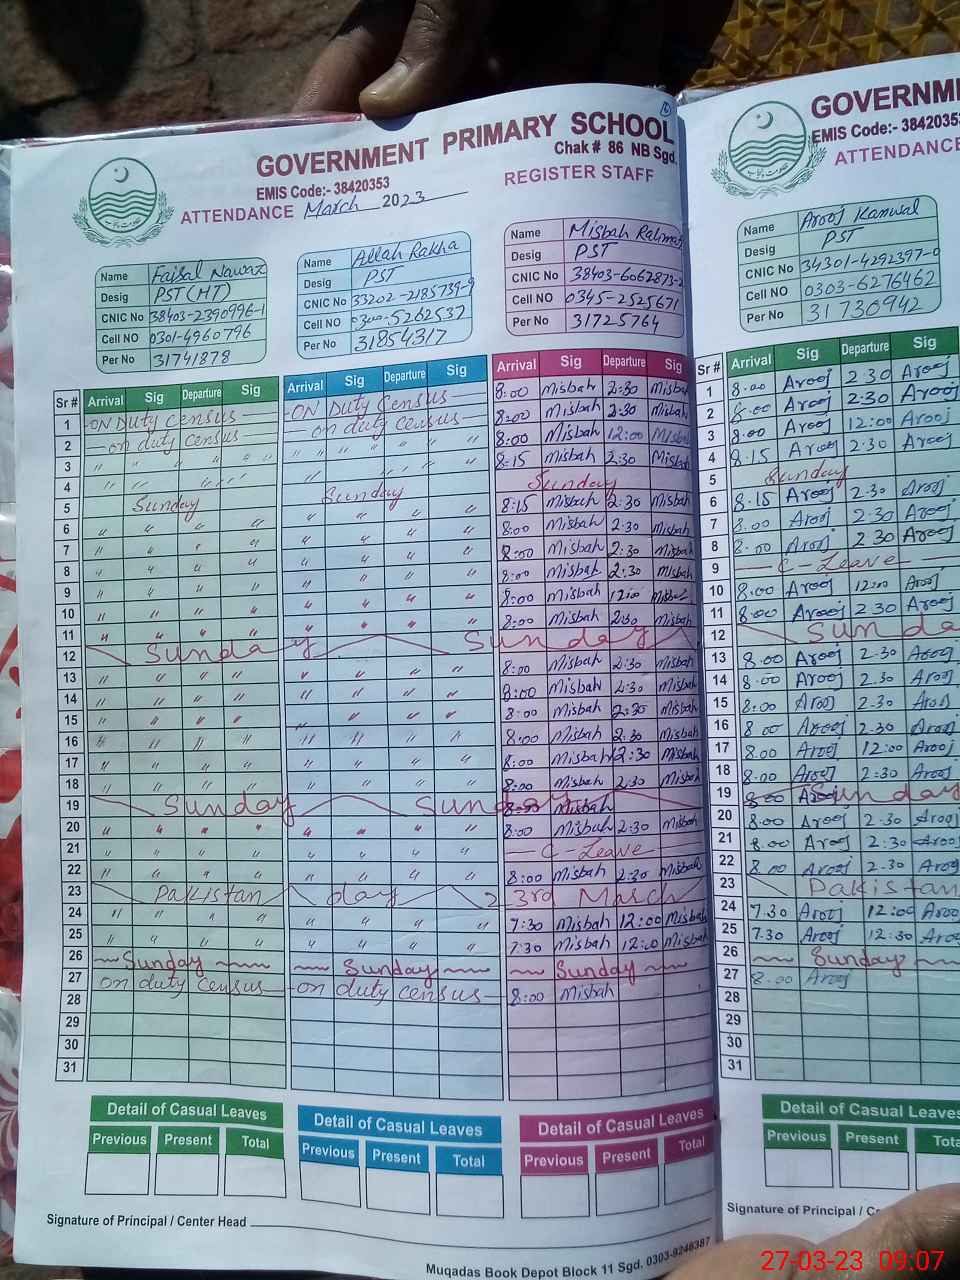 GOVERNMENT PRIMARY SCHOOL
Chak # 86 NB Sgd.
EMIS Code:- 38420353
ATTENDANCE March 2023 REGISTER STAFF
Name Faisal Nawaz
Desig PST (HT)
CNIC No 38403-2390996-1
Cell NO 0301-4960796
Per No 31741878
Name Allah Rakha
Desig PST
CNIC No 33202-2185739-9
Cell NO 0300-5262537
Per No 31854317
Name Misbah Rahmat
Desig PST
CNIC No 38403-6062873-2
Cell NO 0345-2525671
Per No 31725764
Sr # Arrival Sig Departure Sig Arrival Sig Departure Sig Arrival Sig Departure Sig
1 ON Duty Census ON Duty Census 8:00 Misbah 2:30 Misbah
2 on duty census on duty census 8:00 Misbah 2:30 Misbah
3 " " " " " " " " 8:00 Misbah 12:00 Misbah
4 " " " " " " " " 8:15 Misbah 2:30 Misbah
5 Sunday Sunday Sunday
6 " " " " " " " " 8:15 Misbah 2:30 Misbah
7 " " " " " " " " 8:00 Misbah 2:30 Misbah
8 " " " " " " " " 8:00 Misbah 2:30 Misbah
9 " " " " " " " " 8:00 Misbah 2:30 Misbah
10 " " " " " " " " 8:00 Misbah 12:00 Misbah
11 " " " " " " " " 8:00 Misbah 2:30 Misbah
12 Sunday Sunday
13 " " " " " " " " 8:00 Misbah 2:30 Misbah
14 " " " " " " " " 8:00 Misbah 2:30 Misbah
15 " " " " " " " " 8:00 Misbah 2:30 Misbah
16 " " " " " " " " 8:00 Misbah 2:30 Misbah
17 " " " " " " " " 8:00 Misbah 12:30 Misbah
18 " " " " " " " " 8:00 Misbah 2:30 Misbah
19 Sunday Sunday Misbah
20 " " " " " " " " 8:00 Misbah 2:30 Misbah
21 " " " " " " " " C-Leave
22 " " " " " " " " 8:00 Misbah 2:30 Misbah
23 Pakistan day 23rd March
24 " " " " " " " " 7:30 Misbah 12:00 Misbah
25 " " " " " " " " 7:30 Misbah 12:00 Misbah
26 Sunday Sunday Sunday
27 on duty census on duty census 8:00 Misbah
28
29
30
31
Detail of Casual Leaves Detail of Casual Leaves Detail of Casual Leaves
Previous Present Total Previous Present Total Previous Present Total
Signature of Principal / Center Head
Muqadas Book Depot Block 11 Sgd, 0303-9246387
GOVERNM
EMIS Code:- 3842035
ATTENDANCE
Name Arooj Kanwal
Desig PST
CNIC No 34301-4292397-0
Cell NO 0303-6276462
Per No 31730942
Sr # Arrival Sig Departure Sig
1 8.00 Arooj 2 30 Arooj
2 8.00 Arooj 2.30 Arooj
3 8.00 Arooj 12:00 Arooj
4 8.15 Arooj 2.30 Arooj
5 Sunday
6 8.15 Arooj 2.30 Arooj
7 8.00 Arooj 2.30 Arooj
8 8.00 Arooj 2 30 Arooj
9 C-Leave
10 8.00 Arooj 12:00 Arooj
11 8.00 Arooj 2 30 Arooj
12 Sunda
13 8.00 Arooj 2.30 Arooj
14 8.00 Arooj 2.30 Arooj
15 8.00 Arooj 2.30 Arooj
16 8 00 Arooj 2.30 Arooj
17 8.00 Arooj 12:00 Arooj
18 8.00 Arooj 2:30 Arooj
19 8.00 Arooj Sunday
20 8.00 Arooj 2.30 Arooj
21 8.00 Arooj 2:30 Arooj
22 8.00 Arooj 2.30 Arooj
23 Pakistan
24 7.30 Arooj 12:00 Arooj
25 7.30 Arooj 12:30 Aroo
26 Sunday
27 8.00 Arooj
28
29
30
31
Detail of Casual Leaves
Previous Present Tota
Signature of Principal / C
27-03-23 09:07